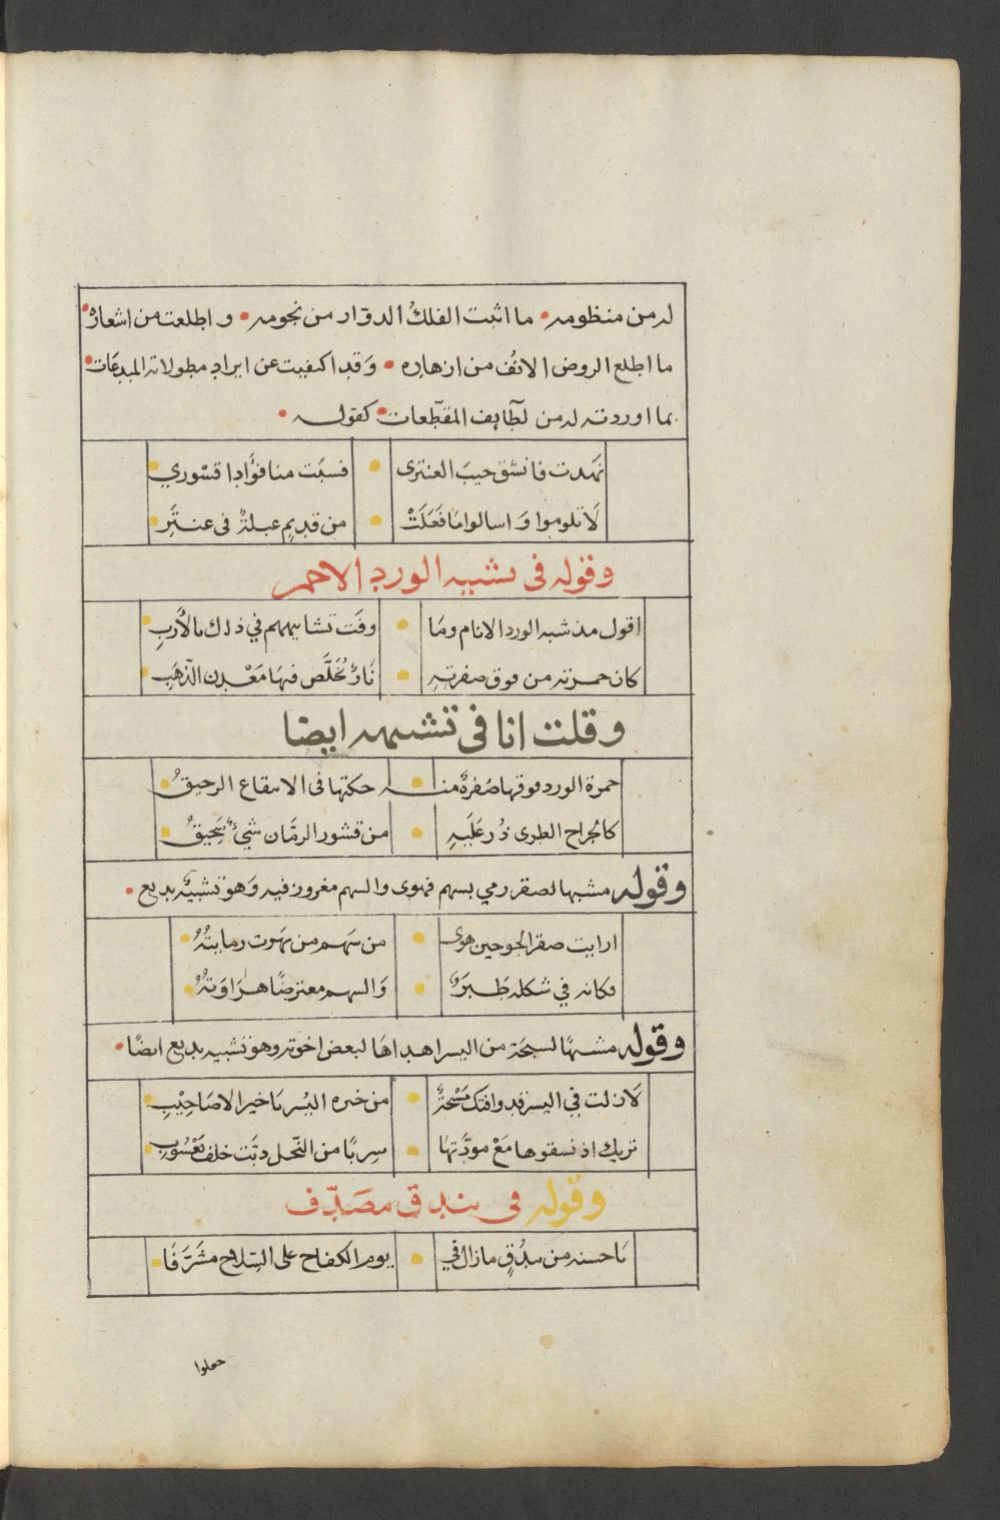 له من منظومه • ما اثبت الفلكُ الدوّار من نجومه • واطلعت من اشعارهْ •
ما اطلع الروض الانُف من ازهاره • وَقد اكتفيت عن ايراد مطولاته المبدعَات •
بما اوردته له من لطَايف المقطّعات • كقوله •
نهدت فانشق جيبَ العنترى • فسبَت منا فؤَادا قسْوري •
لَا تلوموا وَاسالوا مَا فَعَلَتْ • من قديمٍ عبلةْ فى عنترِ •
وقوله فى تشبيه الورد الاحمر
اقول مذ شبه الورد الانام ومَا • وفَت تشابيههم في ذلك بالأَربِ •
كان حمرته من فوق صفرتهِ • نَارٌ تُخَلَّص فيهَا مَعْدن الذّهَبِ •
وقلت انا فى تشبيهه ايضا
حمرة الورد فوقها صُفرةٌ منه • حكتها فى الابتقاع الرحيقُ •
كالجراح الطرى ذُر عَلَيهِ • من قشور الرمَّان شيءٌ سَحِيقُ •
وقوله مشبها لصقر رمي بسهم فهوى والسهم مغروز فيه وَهو تشبيه بديع •
ارايت صقر الجو حين هوى • من سَهم من يَهوت رمايتُهُ •
فكانه في شكله طَبرَ • وَالسهم معترضًا هرَاوَتهُ •
وقوله مشبهًا لسبحَة من اليسر اهداهَا لبعض اخوته وهو تشبيه بديع ايضًا •
لَا زلت في اليسر قد وافتك مَسْبَحَةٌ • من خيره اليُسر يَا خير الاصَاحِيْبِ •
تريك اذ نسقوها مَعْ مودَّتها • سِربًا من النّحل دبَّت خلف يَعْسُوبِ •
وقوله فى بندق مصَدّف
يَا حسنه من بندُقٍ ما زال في • يوم الكفاح على السّلاح مشَرَّفَا •
جعلوا